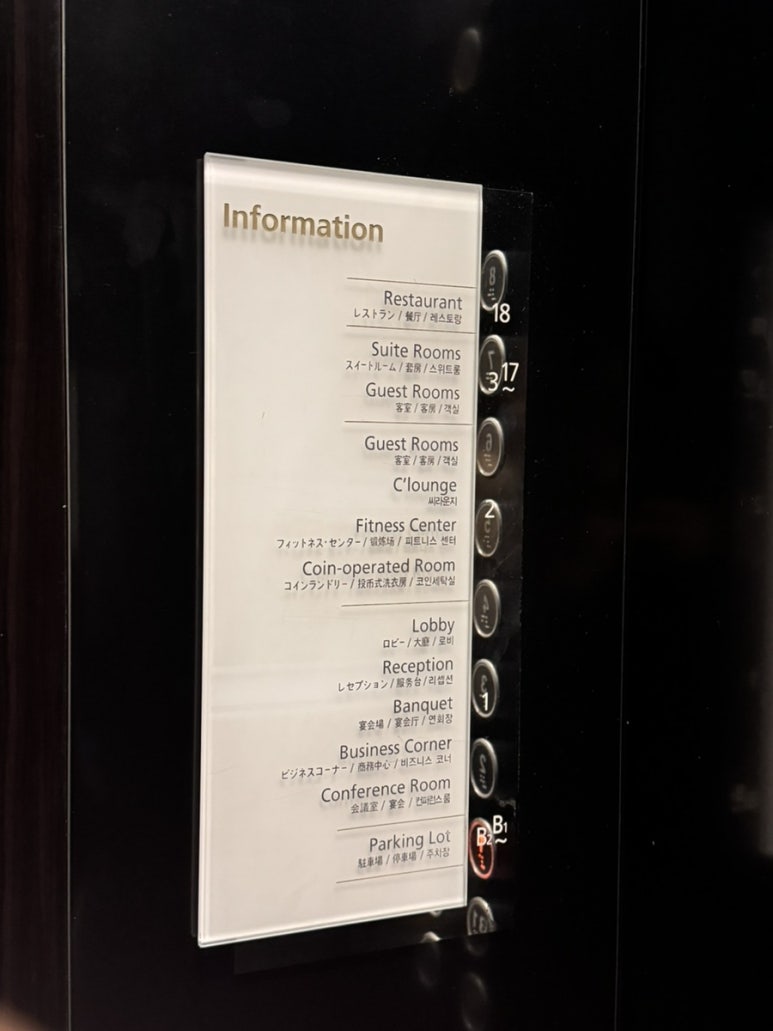 Information
Restaurant
レストラン / 餐厅 / 레스토랑
18
Suite Rooms
スイートルーム / 套房 / 스위트룸
17
3~
Guest Rooms
客室 / 客房 / 객실
Guest Rooms
客室 / 客房 / 객실
C'lounge
씨라운지
2
Fitness Center
フィットネス・センター / 锻炼场 / 피트니스 센터
Coin-operated Room
コインランドリー / 投币式洗衣房 / 코인세탁실
Lobby
ロビー / 大廳 / 로비
Reception
レセプション / 服务台 / 리셉션
1
Banquet
宴会場 / 宴会厅 / 연회장
Business Corner
ビジネスコーナー / 商務中心 / 비즈니스 코너
Conference Room
会議室 / 宴会 / 컨퍼런스룸
B1
B2~
Parking Lot
駐車場 / 停車場 / 주차장